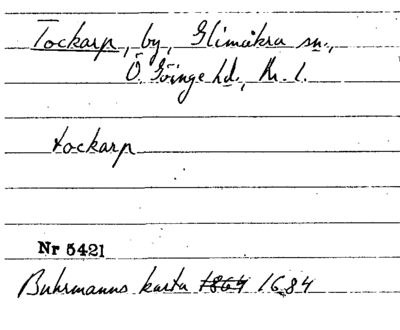 Tockarp, by, Glimåkra sn.,
Ö. Göinge hd., Kr. l.
tockarp
Nr 5421
Buhrmanns karta 1864 1684